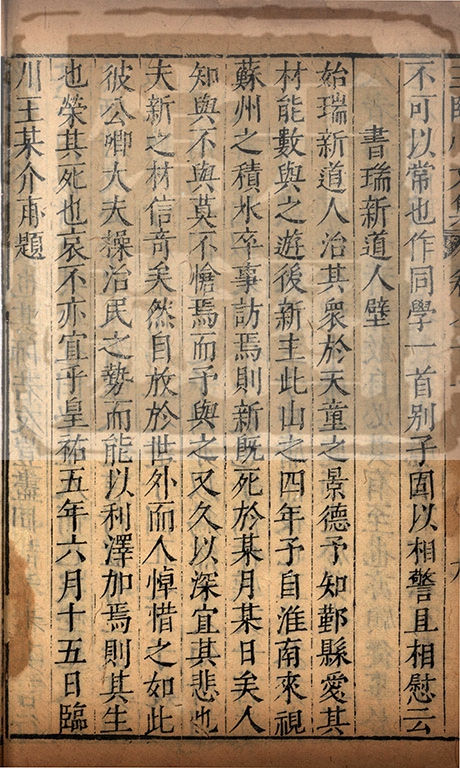 不可以常也作同學一首别子固以相警且相慰云
書瑞新道人壁
始瑞新道人治其衆於天童之景德予知鄞縣愛其
材能數與之遊後新主此山之四年予自淮南來視
蘇州之積水卒事訪焉則新既死於某月某日矣人
知與不與莫不愴焉而予與之又久以深宜其悲也
夫新之材信竒矣然自放於世外而人悼惜之如此
彼公卿大夫操治民之勢而能以利澤加焉則其生
也榮其死也哀不亦宜乎皇祐五年六月十五日臨
川王某介甫題